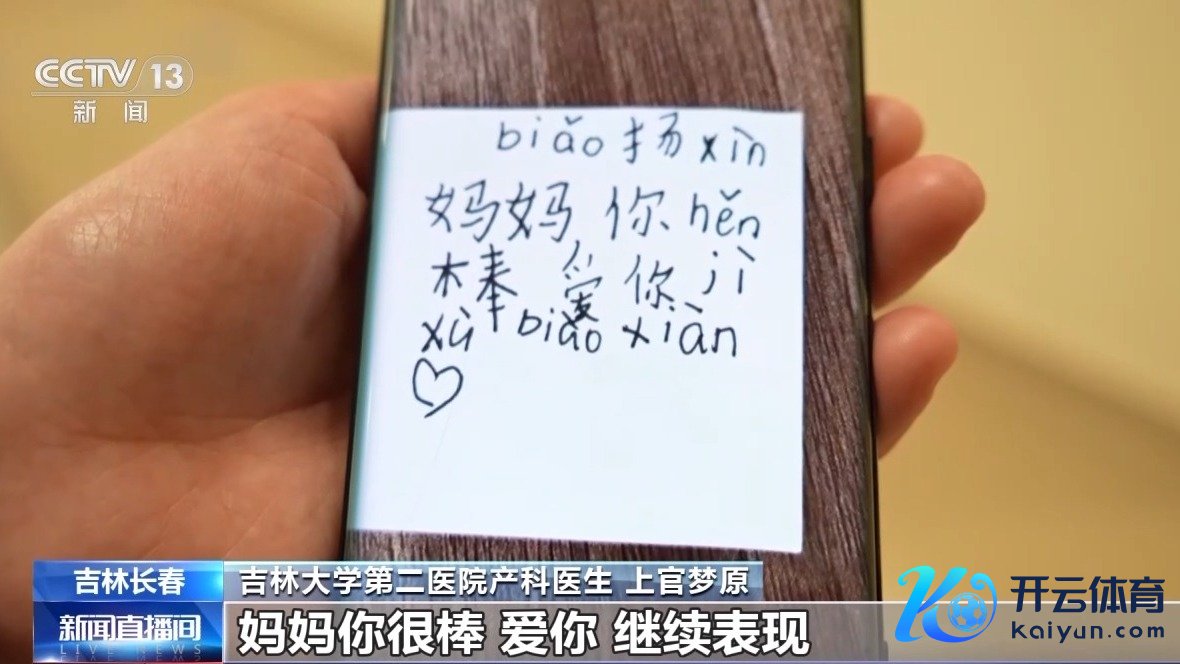 CCTV 13
新闻
biǎo 扬 xìn
妈妈 你 hěn
棒 爱 你 jì
xù biǎo xiàn
吉林长春
吉林大学第二医院产科医生 上官梦原
新闻直播间
LIVE NEWS
妈妈你很棒 爱你 继续表现
开云体育
kaiyun.com